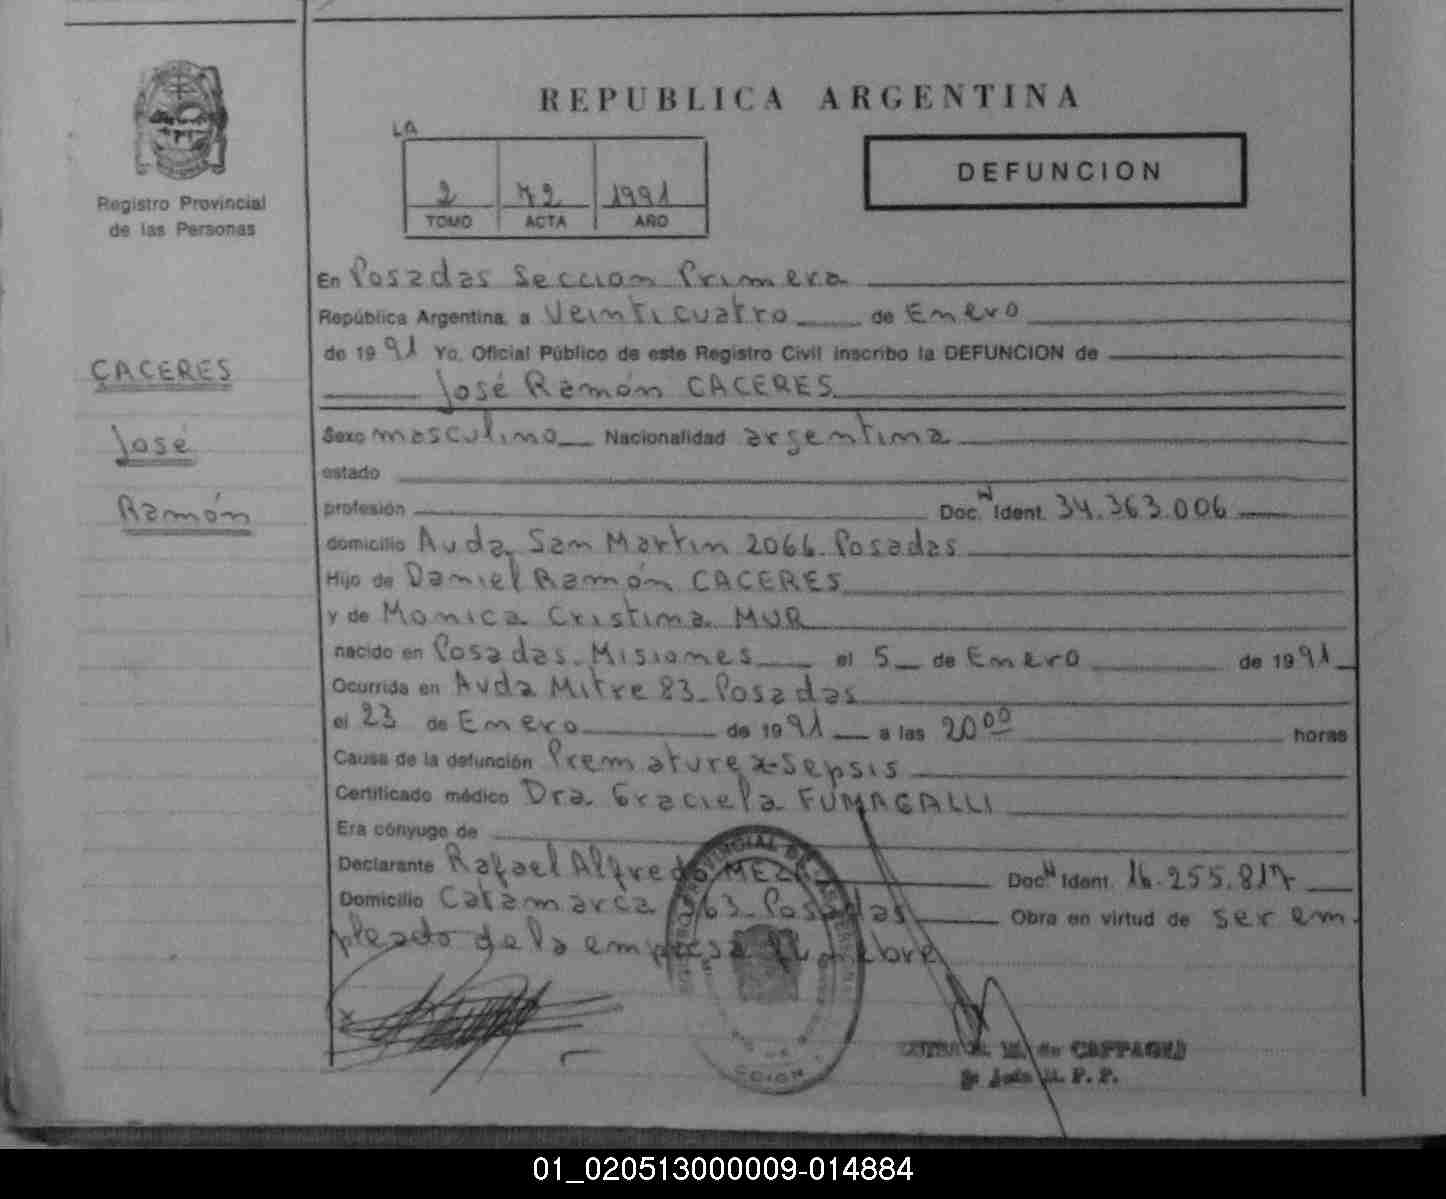 REPUBLICA ARGENTINA
LA
2 72 1991
TOMO ACTA AÑO
DEFUNCION
Registro Provincial
de las Personas
CACERES
José
Ramón
En Posadas Seccion Primera
República Argentina, a Veinticuatro de Enero
de 1991 Yo, Oficial Público de este Registro Civil inscribo la DEFUNCION de
José Ramón CACERES
Sexo masculino Nacionalidad argentina
estado
profesión Doc. N Ident. 34.363.006
domicilio Avda. San Martin 2066. Posadas
Hijo de Daniel Ramón CACERES
y de Monica Cristina MUR
nacido en Posadas. Misiones el 5 de Enero de 1991
Ocurrida en Avda Mitre 83. Posadas
el 23 de Enero de 1991 a las 20 00 horas
Causa de la defunción Prematurez-Sepsis
Certificado médico Dra Graciela FUMAGALLI
Era cónyuge de
Declarante Rafael Alfredo Doc. N Ident. 16.255.817
Domicilio Catamarca Posadas Obra en virtud de ser em
pleado de la empresa funebre
de
M. P. P.
01_020513000009-014884